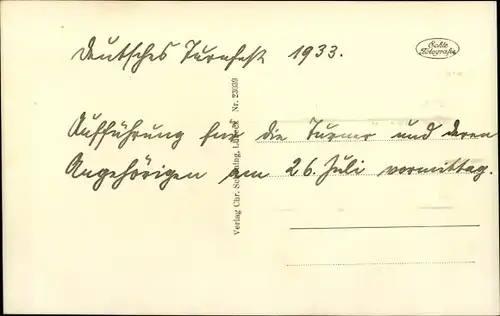 Deutsches Turnfest 1933.
Echte
Fotografie
Aufführung für die Turner und deren
Angehörigen am 26. Juli vormittag.
Verlag Chr. Schöning, Lübeck Nr. 23039